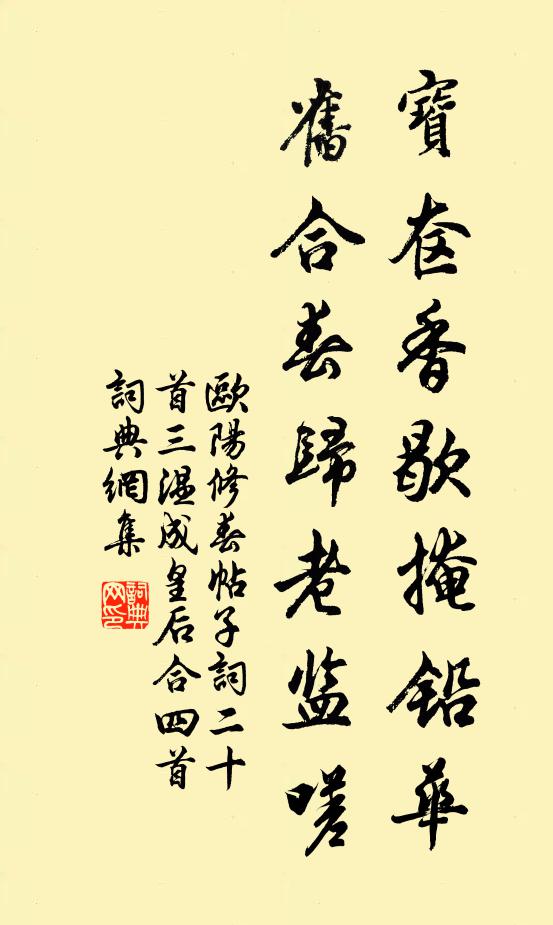 寶奩香歇掩鉛華
舊合春歸老監嗟
歐陽修春帖子詞二十
首三温成皇后合四首
詞典網集
詞典
网印